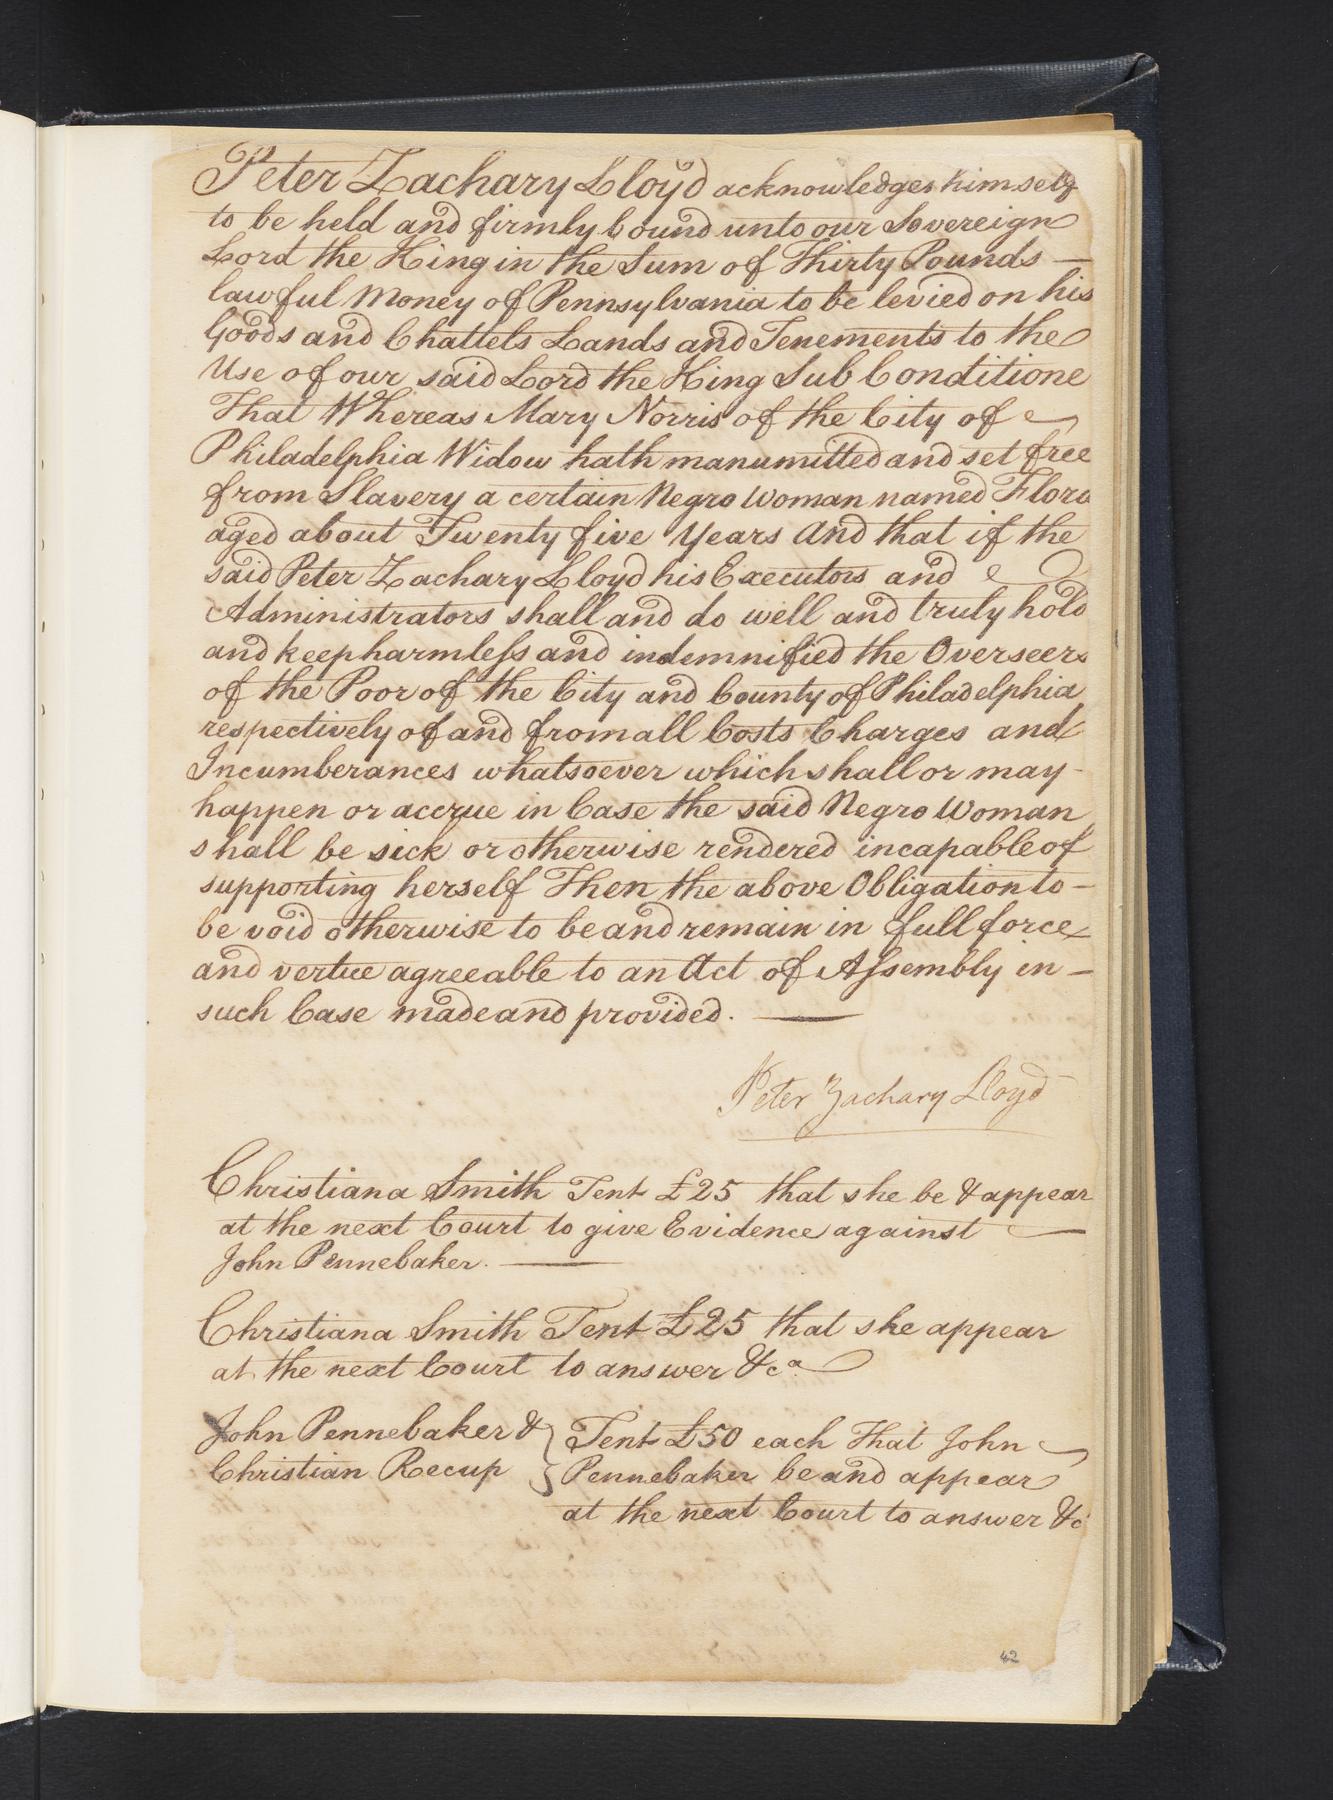 Peter Zachary Lloyd acknowledges himself
to be held and firmly bound unto our Sovereign
Lord the King in the Sum of Thirty Pounds —
lawful Money of Pennsylvania to be levied on his
Goods and Chattels Lands and Tenements to the
Use of our said Lord the King Sub Conditione
That Whereas Mary Norris of the City of
Philadelphia Widow hath manumitted and set free
from Slavery a certain Negro Woman named Flora
aged about Twenty five Years And that if the
said Peter Zachary Lloyd his Executors and
Administrators shall and do well and truly hold
and keep harmless and indemnified the Overseers
of the Poor of the City and County of Philadelphia
respectively of and from all Costs Charges and
Incumberances whatsoever which shall or may -
happen or accrue in Case the said Negro Woman
shall be sick or otherwise rendered incapable of
supporting herself Then the above Obligation to -
be void otherwise to be and remain in full force
and vertue agreeable to an Act of Assembly in -
such Case made and provided. —
Peter Zachary Lloyd
Christiana Smith Tent £25 that she be & appear
at the next Court to give Evidence against —
John Pennebaker. —
Christiana Smith Tent £25 that she appear
at the next Court to answer &ca
John Pennebaker & } Tent £50 each That John
Christian Recup } Pennebaker be and appear
at the next Court to answer &c
42